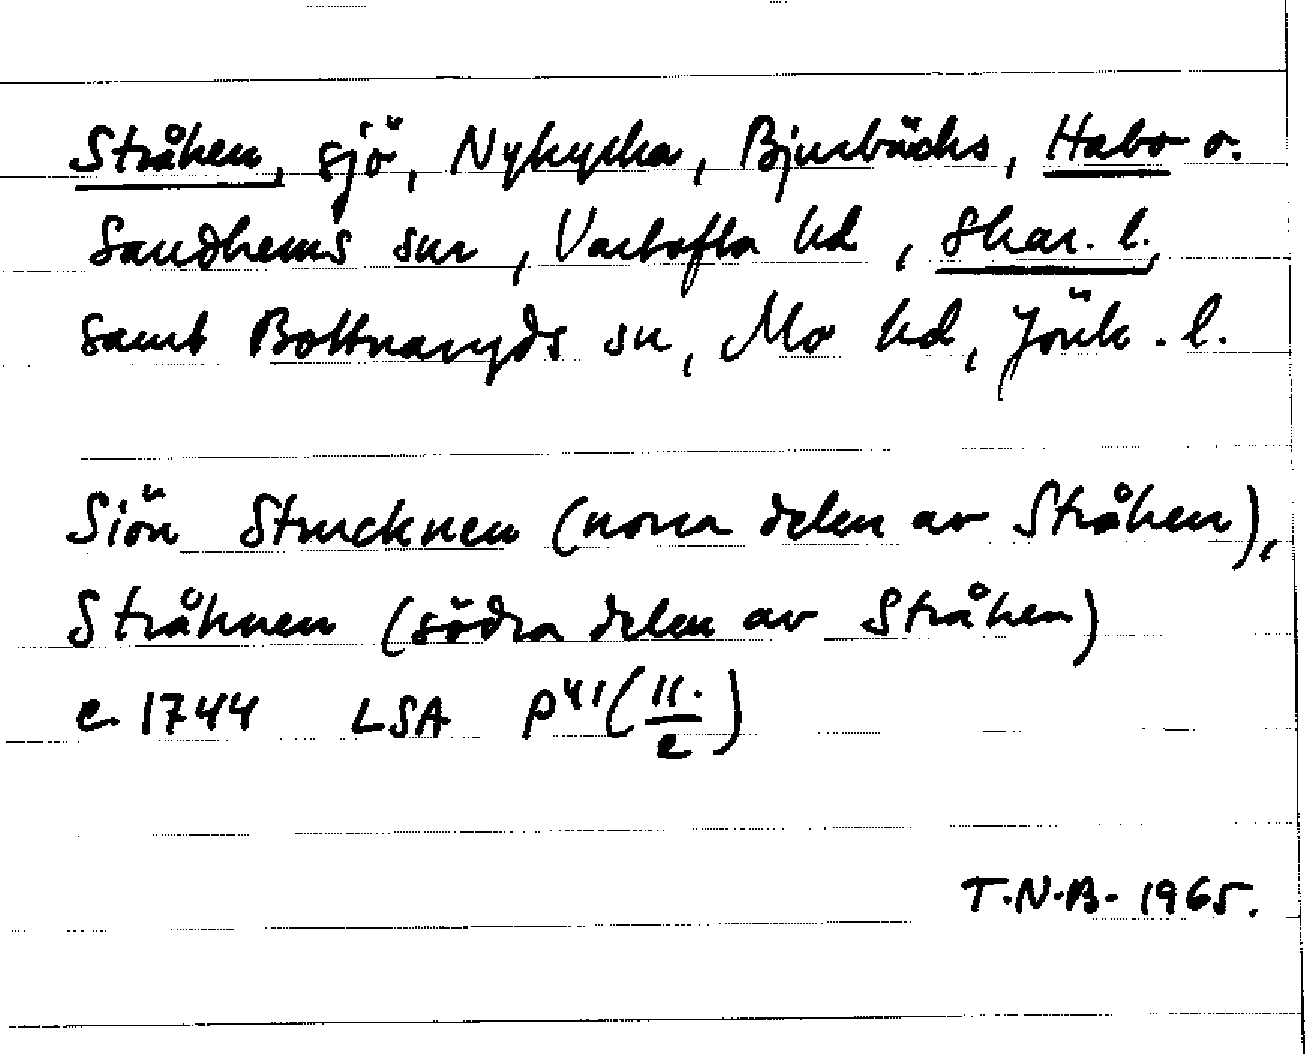 Stråken, sjö, Nykyrka, Bjurbäcks, Habo o.
Sandhems snr, Vartofta hd, Skar. l.,
samt Bottnaryds sn, Mo hd, Jönk. l.
Siön Strucknen (norra delen av Stråken),
Stråknen (södra delen av Stråken)
c. 1744 LSA P41 (11./2)
T.N.B. 1965.